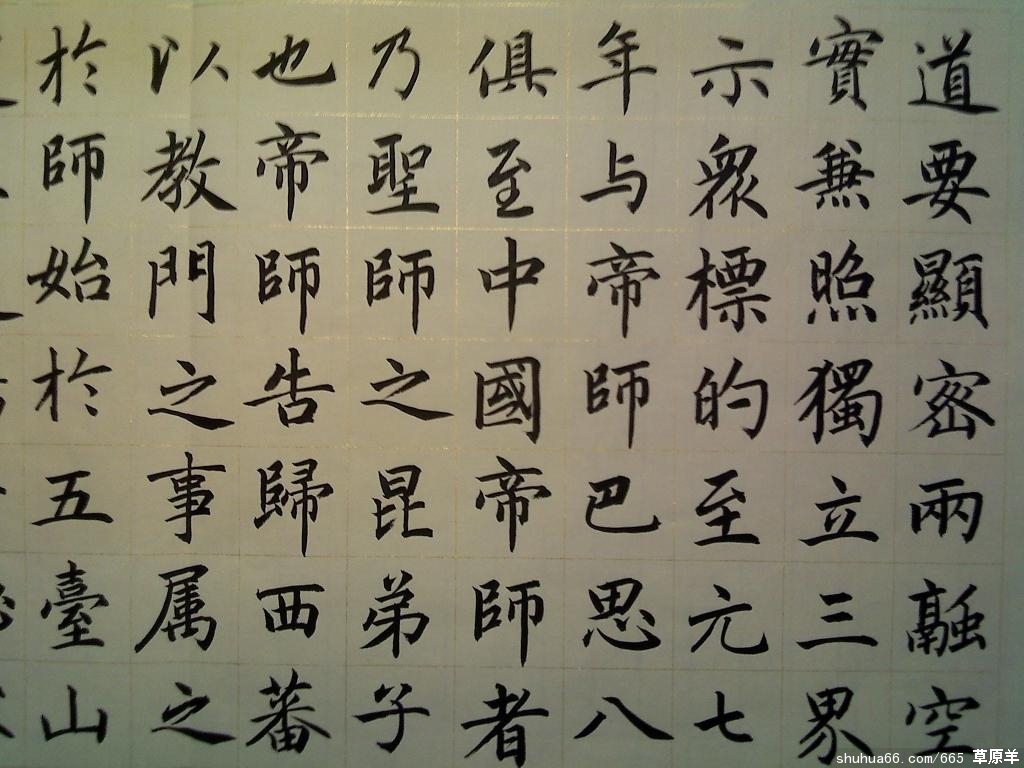 道要顯密兩融空
實兼照獨立三界
示眾標的至元七
年与帝師巴思八
俱至中國帝師者
乃聖師之昆弟子
也帝師告歸西蕃
以教門之事属之
於師始於五臺山
shuhua66.com/665 草原羊